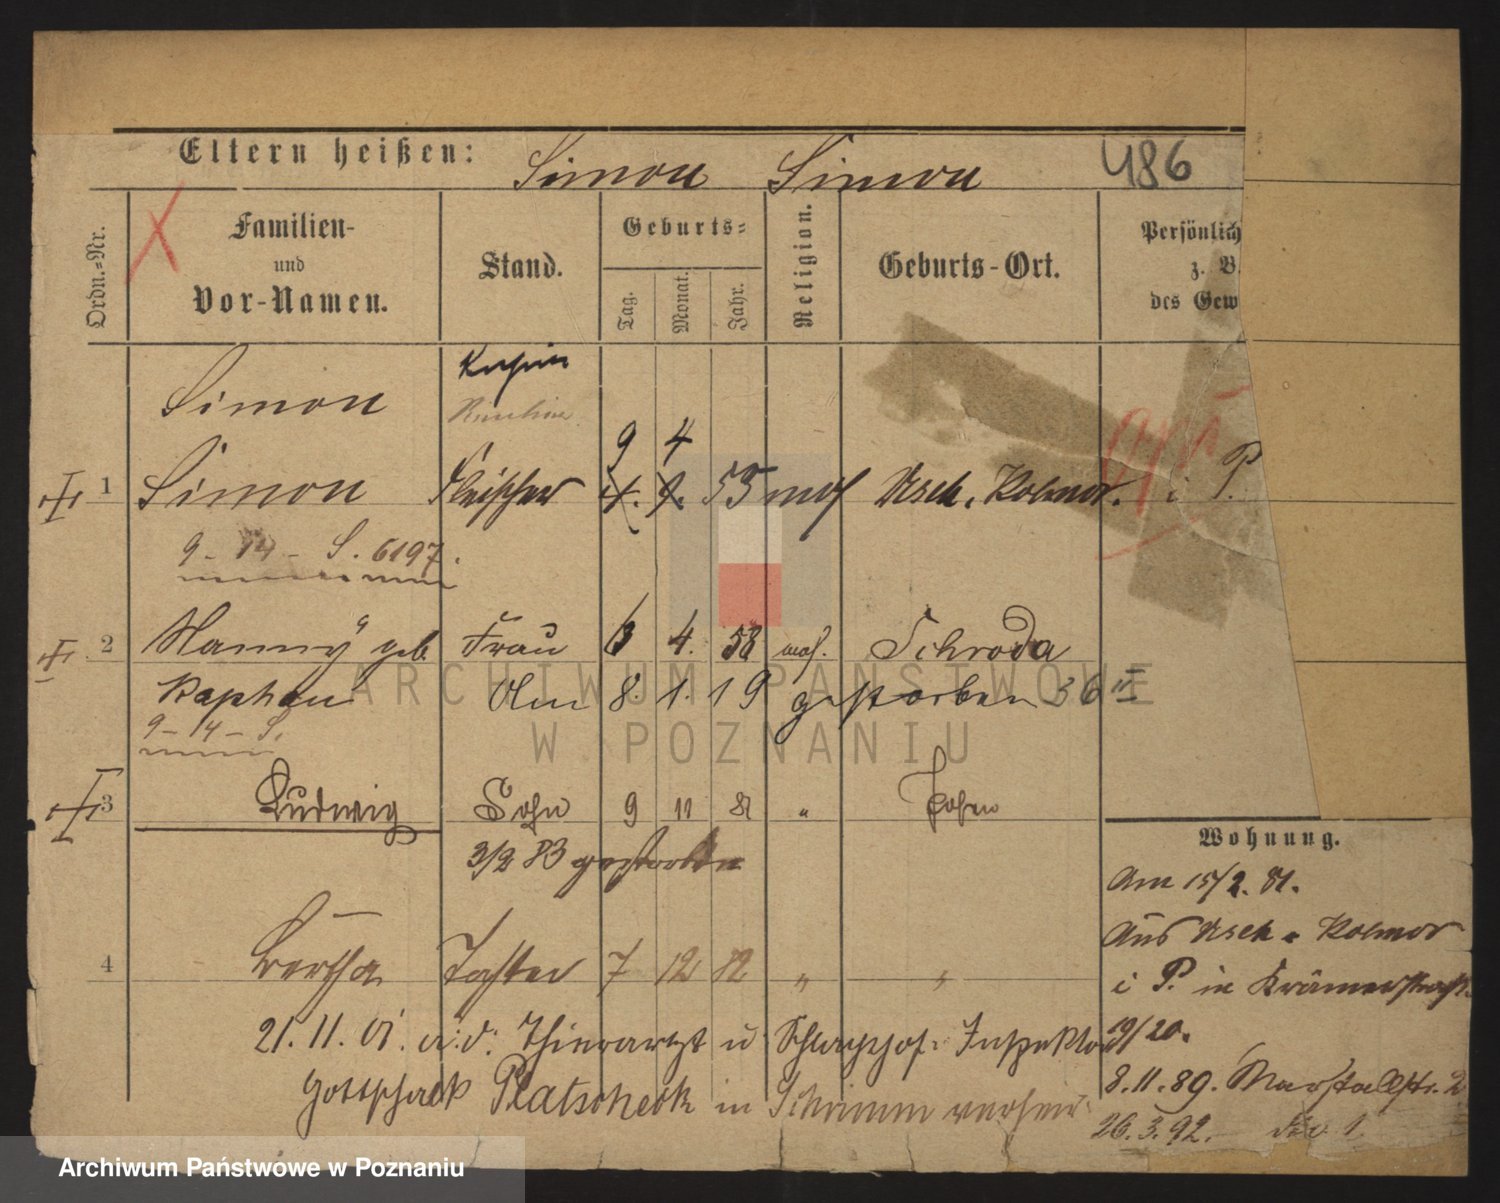 Eltern heißen: Simon Simon 486
Ordn.-Nr.
Familien-
und
Vor-Namen.
Stand.
Geburts-
Tag.
Monat.
Jahr.
Religion.
Geburts-Ort.
Persönlich
z. B.
des Gew
Simon
9 4
1 Simon Fleischer 4. 9. 53 mos Usch, Kolmar i P.
9 - 14 - S. 6197.
2 Nanny geb. Frau 3 4. 58 mos. Schroda
Kaphan 8. 1. 19 gestorben
9 - 14 - S.
3 Ludwig Sohn 9 11 81 " Posen
3/2 83 gestorben
4 Bertha Tochter 7 12 82 " "
21. 11. 01. a. d. Thierarzt u Schlachthof-Inspektor
Gottschalk Platscheck in Schrimm verheir.
Wohnung.
Am 15/2. 81.
Aus Usch - Kolmar
i P. in Krämerstraße
19/20.
8.11.89. Marstallstr. 2
26.3.92. 1
ARCHIWUM PAŃSTWOWE
W POZNANIU
Archiwum Państwowe w Poznaniu